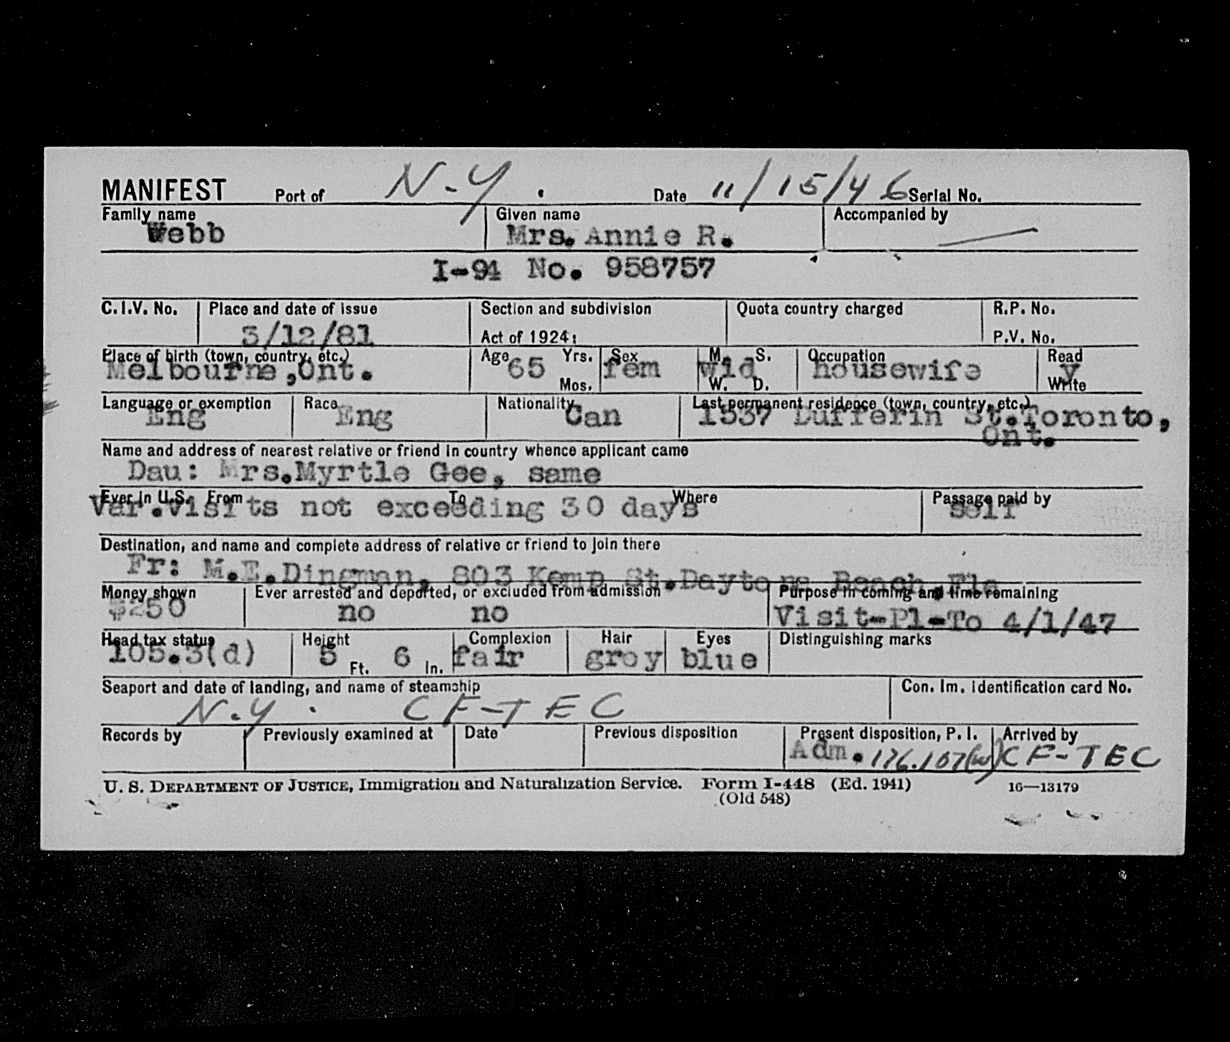 MANIFEST Port of N.Y. Date 11/15/46 Serial No.
Family name Given name Accompanied by
Webb Mrs. Annie R. —
I-94 No. 958757
C.I.V. No. Place and date of issue Section and subdivision Quota country charged R.P. No.
3/12/81 Act of 1924: P.V. No.
Place of birth (town, country, etc.) Age Yrs. Sex M. S. Occupation Read
Melbourne,Ont. 65 fem Wid housewife y
Mos. W. D. Write
Language or exemption Race Nationality Last permanent residence (town, country, etc.)
Eng Eng Can 1537 Dufferin St.Toronto,
Ont.
Name and address of nearest relative or friend in country whence applicant came
Dau: Mrs.Myrtle Gee, same
Ever in U.S. From To Where Passage paid by
Var.visits not exceeding 30 days self
Destination, and name and complete address of relative or friend to join there
Fr: M.E.Dingman, 803 Kemp St.Daytona Beach,Fla
Money shown Ever arrested and deported, or excluded from admission Purpose in coming and time remaining
$250 no no Visit-Pl-To 4/1/47
Head tax status Height Complexion Hair Eyes Distinguishing marks
105.3(d) 5 Ft. 6 In. fair grey blue
Seaport and date of landing, and name of steamship Con. Im. Identification card No.
N.Y. CF-TEC
Records by Previously examined at Date Previous disposition Present disposition, P. I. Arrived by
Adm. 176.107(w) CF-TEC
U. S. DEPARTMENT OF JUSTICE, Immigration and Naturalization Service. Form I-448 (Ed. 1941) 16—13179
(Old 548)